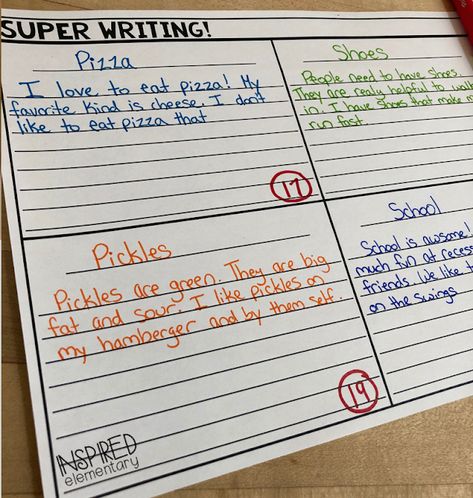 SUPER WRITING!
Pizza
I love to eat pizza! My
favorite kind is cheese. I don't
like to eat pizza that
17
Shoes
People need to have shoes.
They are realy helpful to walk
in. I have shoes that make
run fast.
Pickles
Pickles are green. They are big
fat and sour. I like pickles on
my hamberger and by them self.
19
School
School is awsome!
much fun at recess
friends. We like
on the swings
INSPIRED
elementary